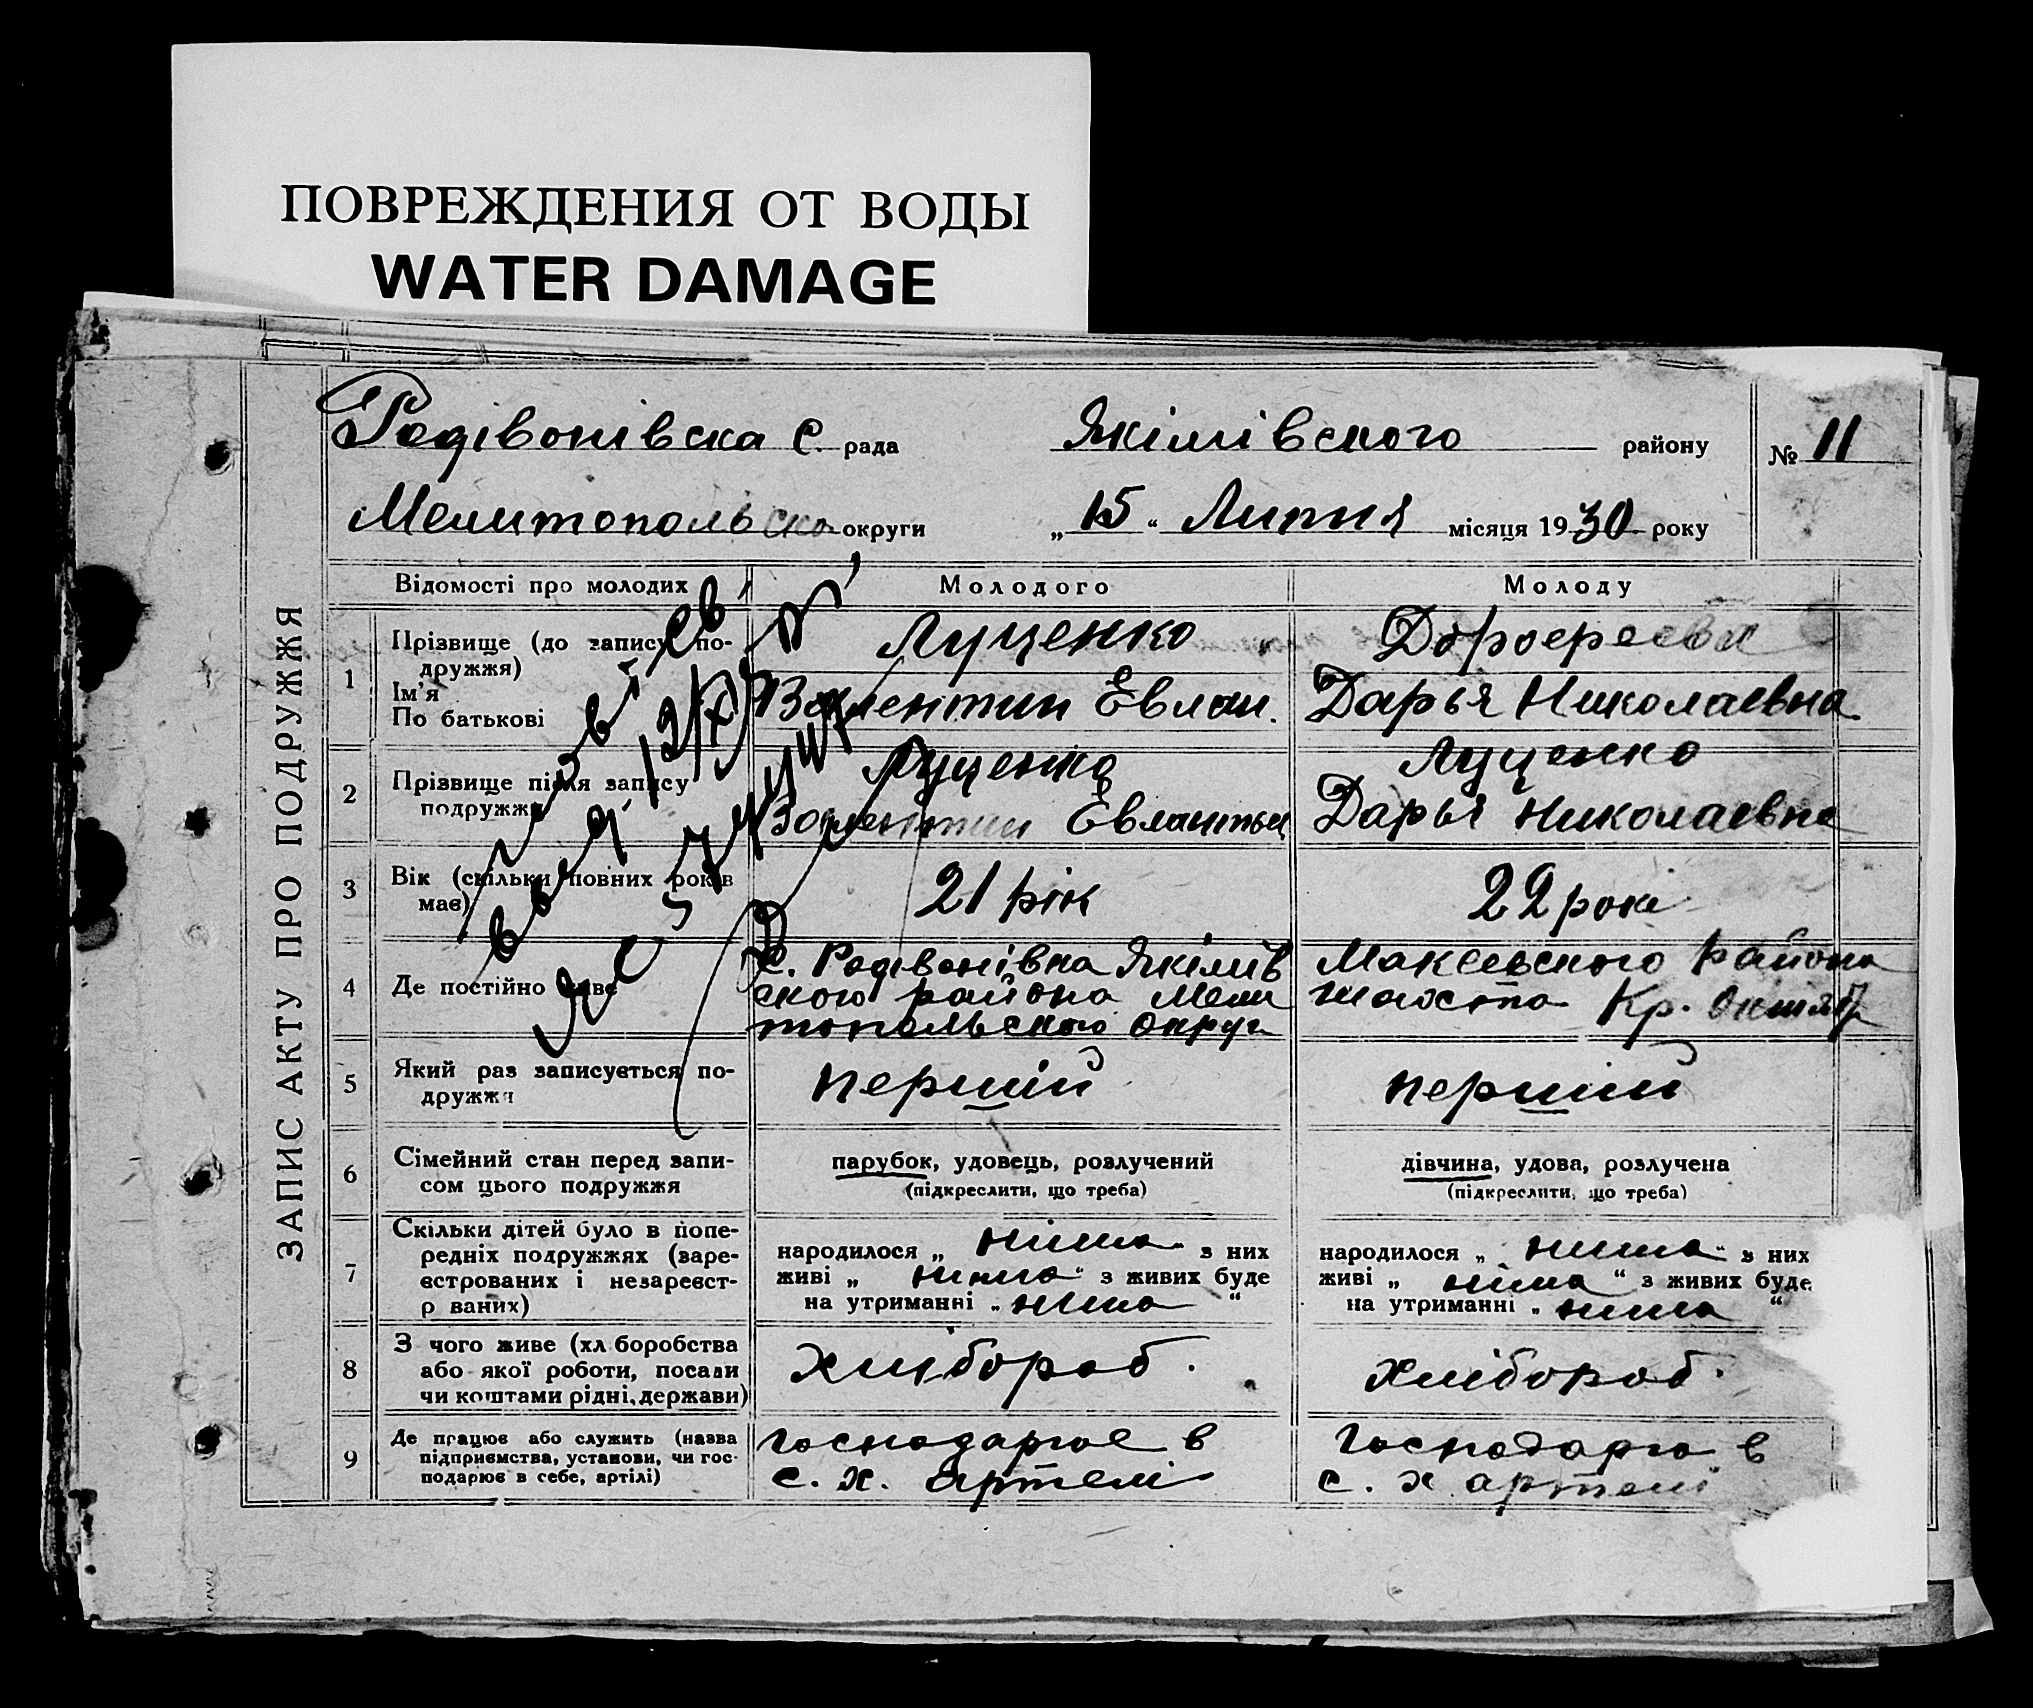 ПОВРЕЖДЕНИЯ ОТ ВОДЫ
WATER DAMAGE
ЗАПИС АКТУ ПРО ПОДРУЖЖЯ
Родівонівска с. рада Якімівского району № 11
Мелитопольска округи „15“ Липня місяця 1930 року
Відомості про молодих Молодого Молоду
1 Прізвище (до запису по-
дружжя)
Ім'я
По батькові
Луценко
Валентин Евлам.
Дорофеева
Дарья Николаевна
2 Прізвище після запису
подружжя
Луценко
Валентин
Луценко
Дарья Николаевна
3 Вік (скільки повних років
має)
21 рік
22 рокі
4 Де постійно живе
с. Родівонівка Якімів
ского района Мели
топольского Округа
Макеевского района
шахта Кр. Октябр
5 Який раз записується по-
дружжя
першій
першій
6 Сімейний стан перед запи-
сом цього подружжя
парубок, удовець, розлучений
(підкреслити, що треба)
дівчина, удова, розлучена
(підкреслити, що треба)
7 Скільки дітей було в попе-
редніх подружжях (заре-
єстрованих і незареєст-
р ваних)
народилося „ нима “ з них
живі „ нима “ з живих буде
на утриманні „ нима “
народилося „ нима “ з них
живі „ німа “ з живих буде
на утриманні „ нима “
8 З чого живе (хл боробства
або якої роботи, посади
чи коштами рідні, держави)
хлібороб.
хлібороб.
9 Де працює або служить (назва
підприємства, установи, чи гос-
подарює в себе, артілі)
господарює в
с. х. артелі
господарю в
с. х артелі